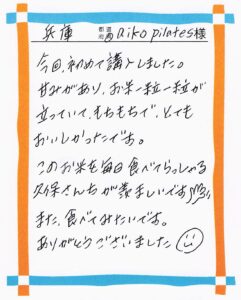 兵庫 都道府県 aiko pilates様
今回、初めて講としました。
甘みがあり、お米一粒一粒が
立っていて、もちもちで、とても
おいしかったです。
このお米を毎日食べてらっしゃる
久保さんちが羨ましいです
また、食べてみたいです。
ありがとうございました